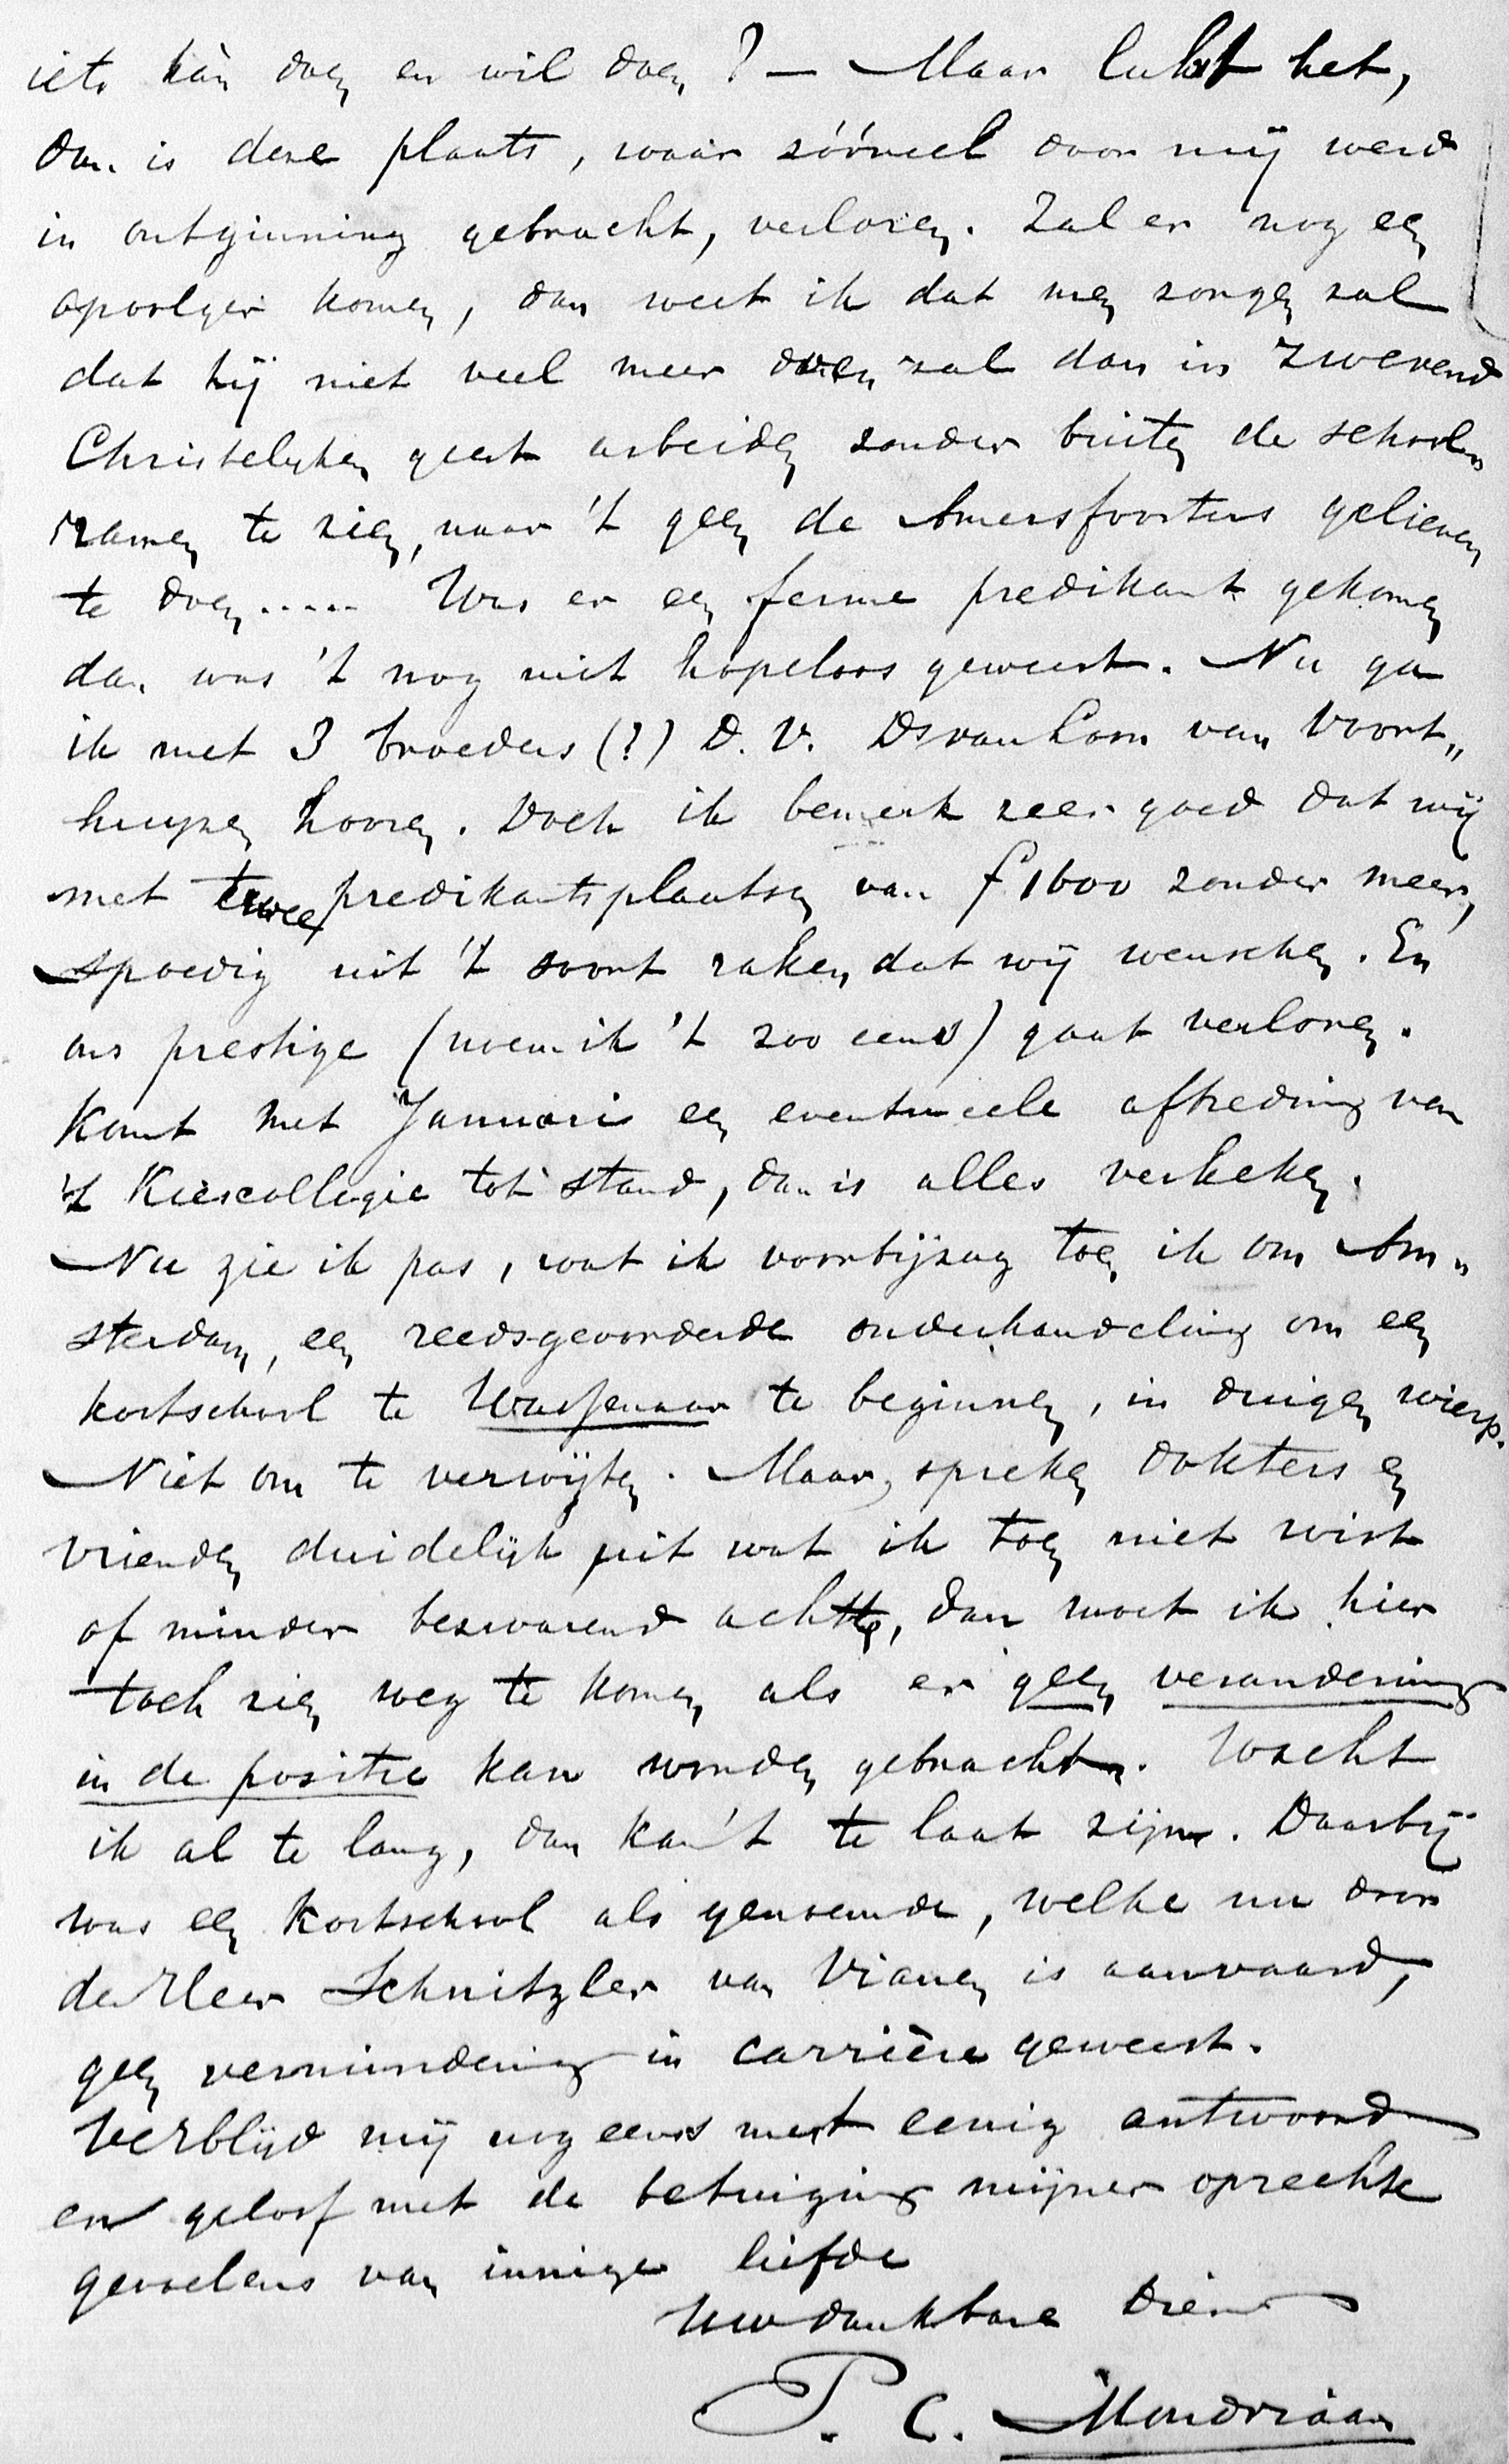 iets kàn doen en wil doen? — Maar lukt het,
dan is deze plaats, waar zóóveel door mij werd
in ontginning gebracht, verloren. Zal er nog een
opvolger komen, dan weet ik dat men zorgen zal
dat hij niet veel meer doen zal dan in zwevend
Christelyken geest arbeiden zonder buiten de school
ramen te zien, naar 't geen de Amersfoorters gelieven
te doen..... Was er een ferme predikant gekomen
dan was 't nog niet hopeloos geweest. Nu ga
ik met 3 broeders (?) D. V. Ds van Loon van Voort„
huyzen hooren. Doch ik bemerk zeer goed dat wij
met twee predikantsplaatsen van f 1600 zonder meer,
spoedig uit 't soort raken dat wij wenschen. En
ons prestige (noem ik 't zoo eens) gaat verloren.
Komt met Januari een eventueele aftreding van
't Kiescollegie tot stand, dan is alles verkeken.
Nu zie ik pas, wat ik voorbijzag toen ik om Am„
sterdam, een reeds gevorderde onderhandeling om een
kostschool te Wassenaar te beginnen, in duigen wierp.
Niet om te verwijten. Maar, spreken dokters en
vrienden duidelijk uit wat ik toen niet wist
of minder bezwarend achtte, dan moet ik hier
toch zien weg te komen als er geen verandering
in de positie kan worden gebracht. Wacht
ik al te lang, dan kan 't te laat zijn. Daarbij
was een kostschool als genoemde, welke nu door
den Heer Schnitzler van Vianen is aanvaard,
geen vermindering in carrière geweest.
Verblijd mij nog eens met eenig antwoord
en geloof met de betuiging mijner oprechte
gevoelens van innige liefde
Uw dankbare Dien
P. C. Mondriaan